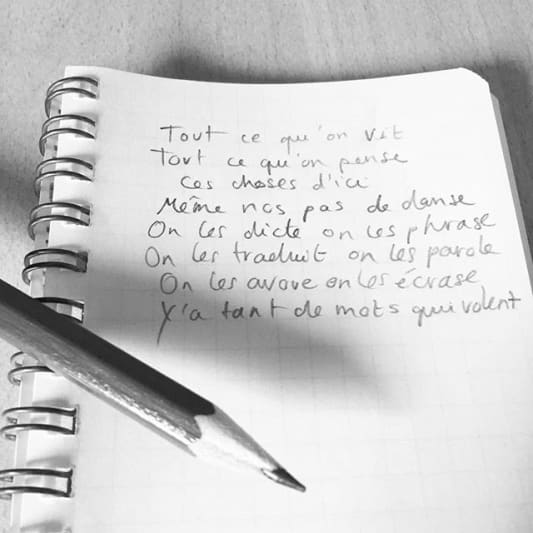 Tout ce qu'on vit
Tout ce qu'on pense
Ces choses d'ici
Même nos pas de danse
On les dicte on les phrase
On les traduit on les parole
On les avoue on les écrase
Y'a tant de mots qui volent